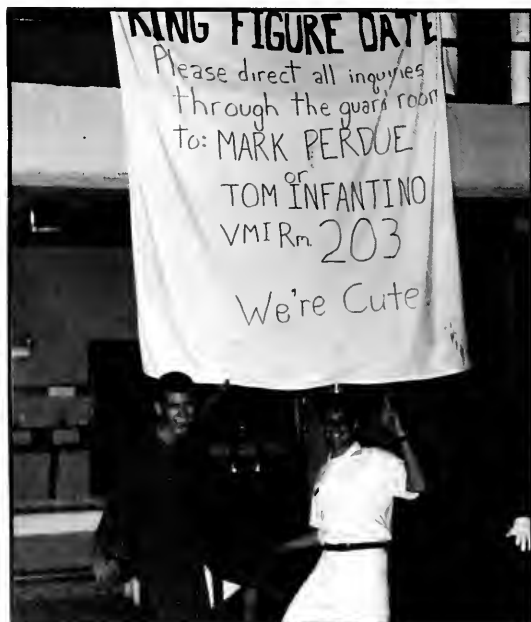 RING FIGURE DATE
Please direct all inquries
through the guard room
to: MARK PERDUE
or
TOM INFANTINO
VMI Rm 203
We're Cute!